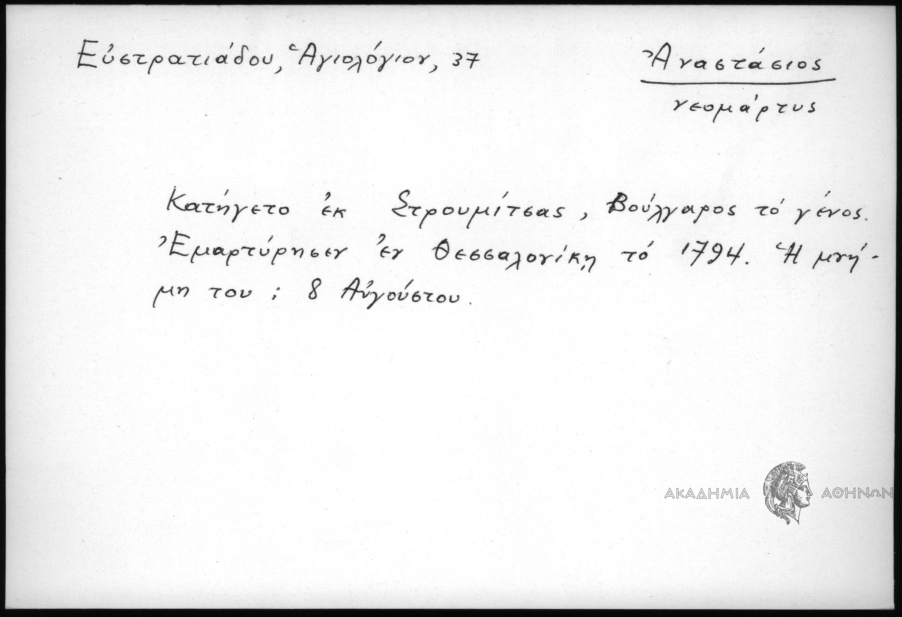 Εὐστρατιάδου, Ἁγιολόγιον, 37
Ἀναστάσιος
νεομάρτυς
Κατήγετο ἐκ Στρουμίτσας, Βούλγαρος τό γένος.
Ἐμαρτύρησεν ἐν Θεσσαλονίκῃ τό 1794. Ἡ μνή-
μη του : 8 Αὐγούστου.
ΑΚΑΔΗΜΙΑ ΑΘΗΝΩΝ